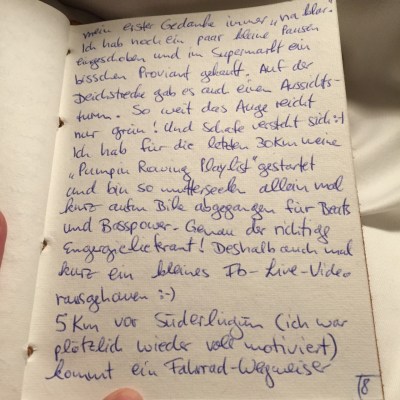 mein erster Gedanke immer „na klar".
Ich hab noch ein paar kleine Pausen
eingeschoben und im Supermarkt ein
bisschen Proviant gekauft. Auf der
Deichstrecke gab es auch einen Aussichts-
turm. So weit das Auge reicht
nur grün! Und Schafe versteht sich :-)
Ich hab für die letzten 30Km meine
„Pumpin Rawing Playlist" gestartet
und bin so mutterseelen allein mal
kurz aufm Bike abgegangen für Beats
und Basspower. Genau der richtige
kurz ein kleines Fb-Live-Video
rausgehauen :-)
5 Km vor Süderlügum (ich war
plötzlich wieder voll motiviert)
kommt ein Fahrrad-Wegweiser
8